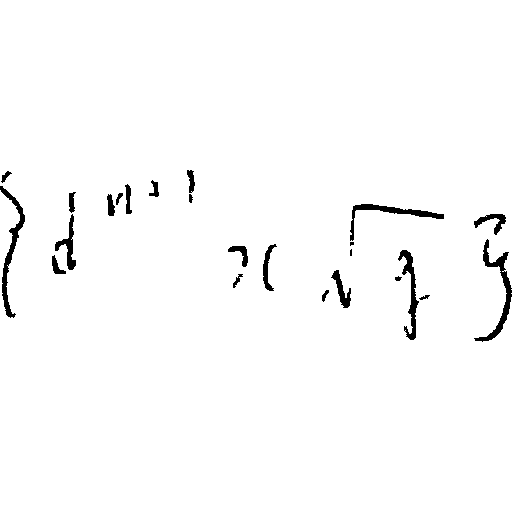 { d^{n+1} x √g }